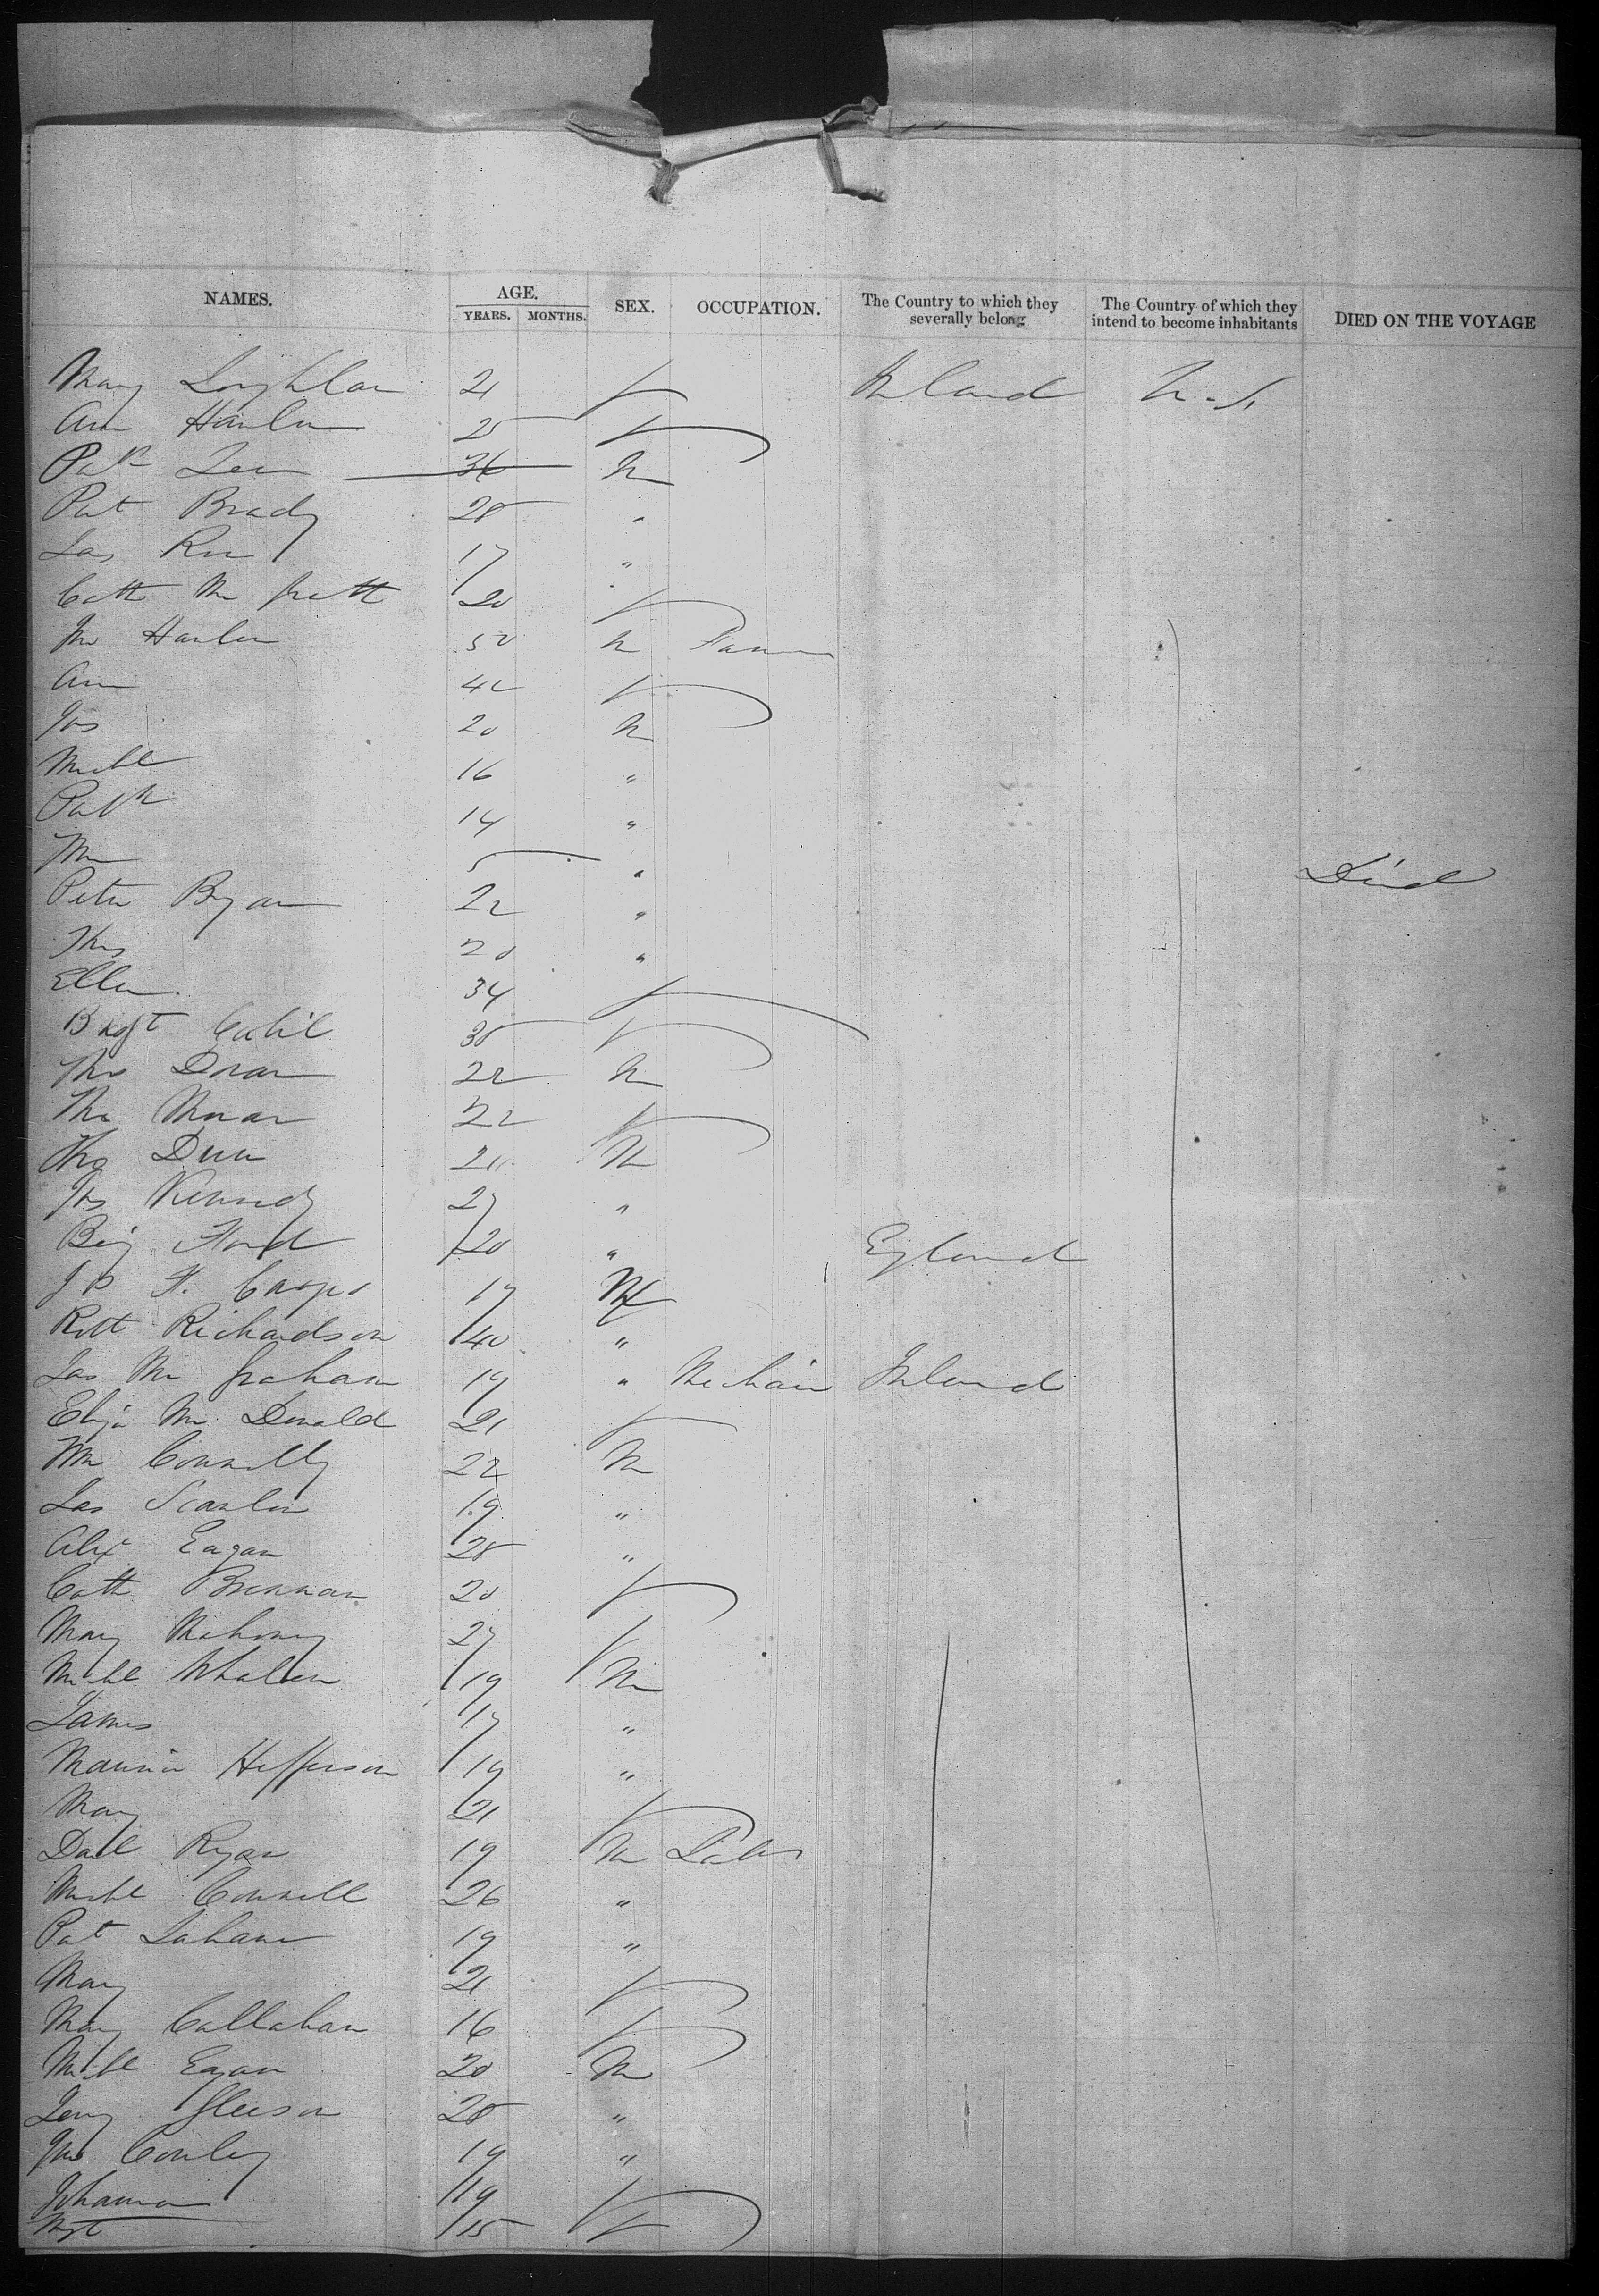 NAMES. AGE. YEARS. MONTHS. SEX. OCCUPATION. The Country to which they severally belong The Country of which they intend to become inhabitants DIED ON THE VOYAGE
Mary Loughlan 21 F Ireland U.S.
Ann Hanlon 25 F
Patk 36 M
Pat Brady 28 "
Jas 17 "
Cath Mc Grath 20 F
Jno Hanlon 50 M Farmer
Ann 42 F
Jos 20 M
Michl 16 "
Patk 14 "
Wm 5 " Died
Peter Ryan 22 "
Thos 20 "
Ellen 34 F
Bridgt Cahil 35 F
Thos Doran 22 M
Moran 22 F
Thos Dunn M
Jas Kennedy 27 "
Benj Ford 20 " England
J P F. 17 M
Robt Richardson 40 "
Jas Mc Graham 19 " Mechanic Ireland
Eliza Mc Donald 21 F
Wm Connelly 22 M
Jas Scanlon 19 "
Alex Eagan 28 "
Cath Brennan 20 F
Mary Mahony 27 F
Michl Whalen 19 M
James 17 "
Maurice Hefferson 19 "
Mary 21 F
Danl Ryan 19 M Labr
Michl Connell 26 "
Pat Lahane 19 "
Mary 21 F
Mary Callahan 16 F
Michl Egan 20 M
Jerry Gleeson 28 "
Jno Conley 19 "
Johanna 19 F
Mgt 15 F